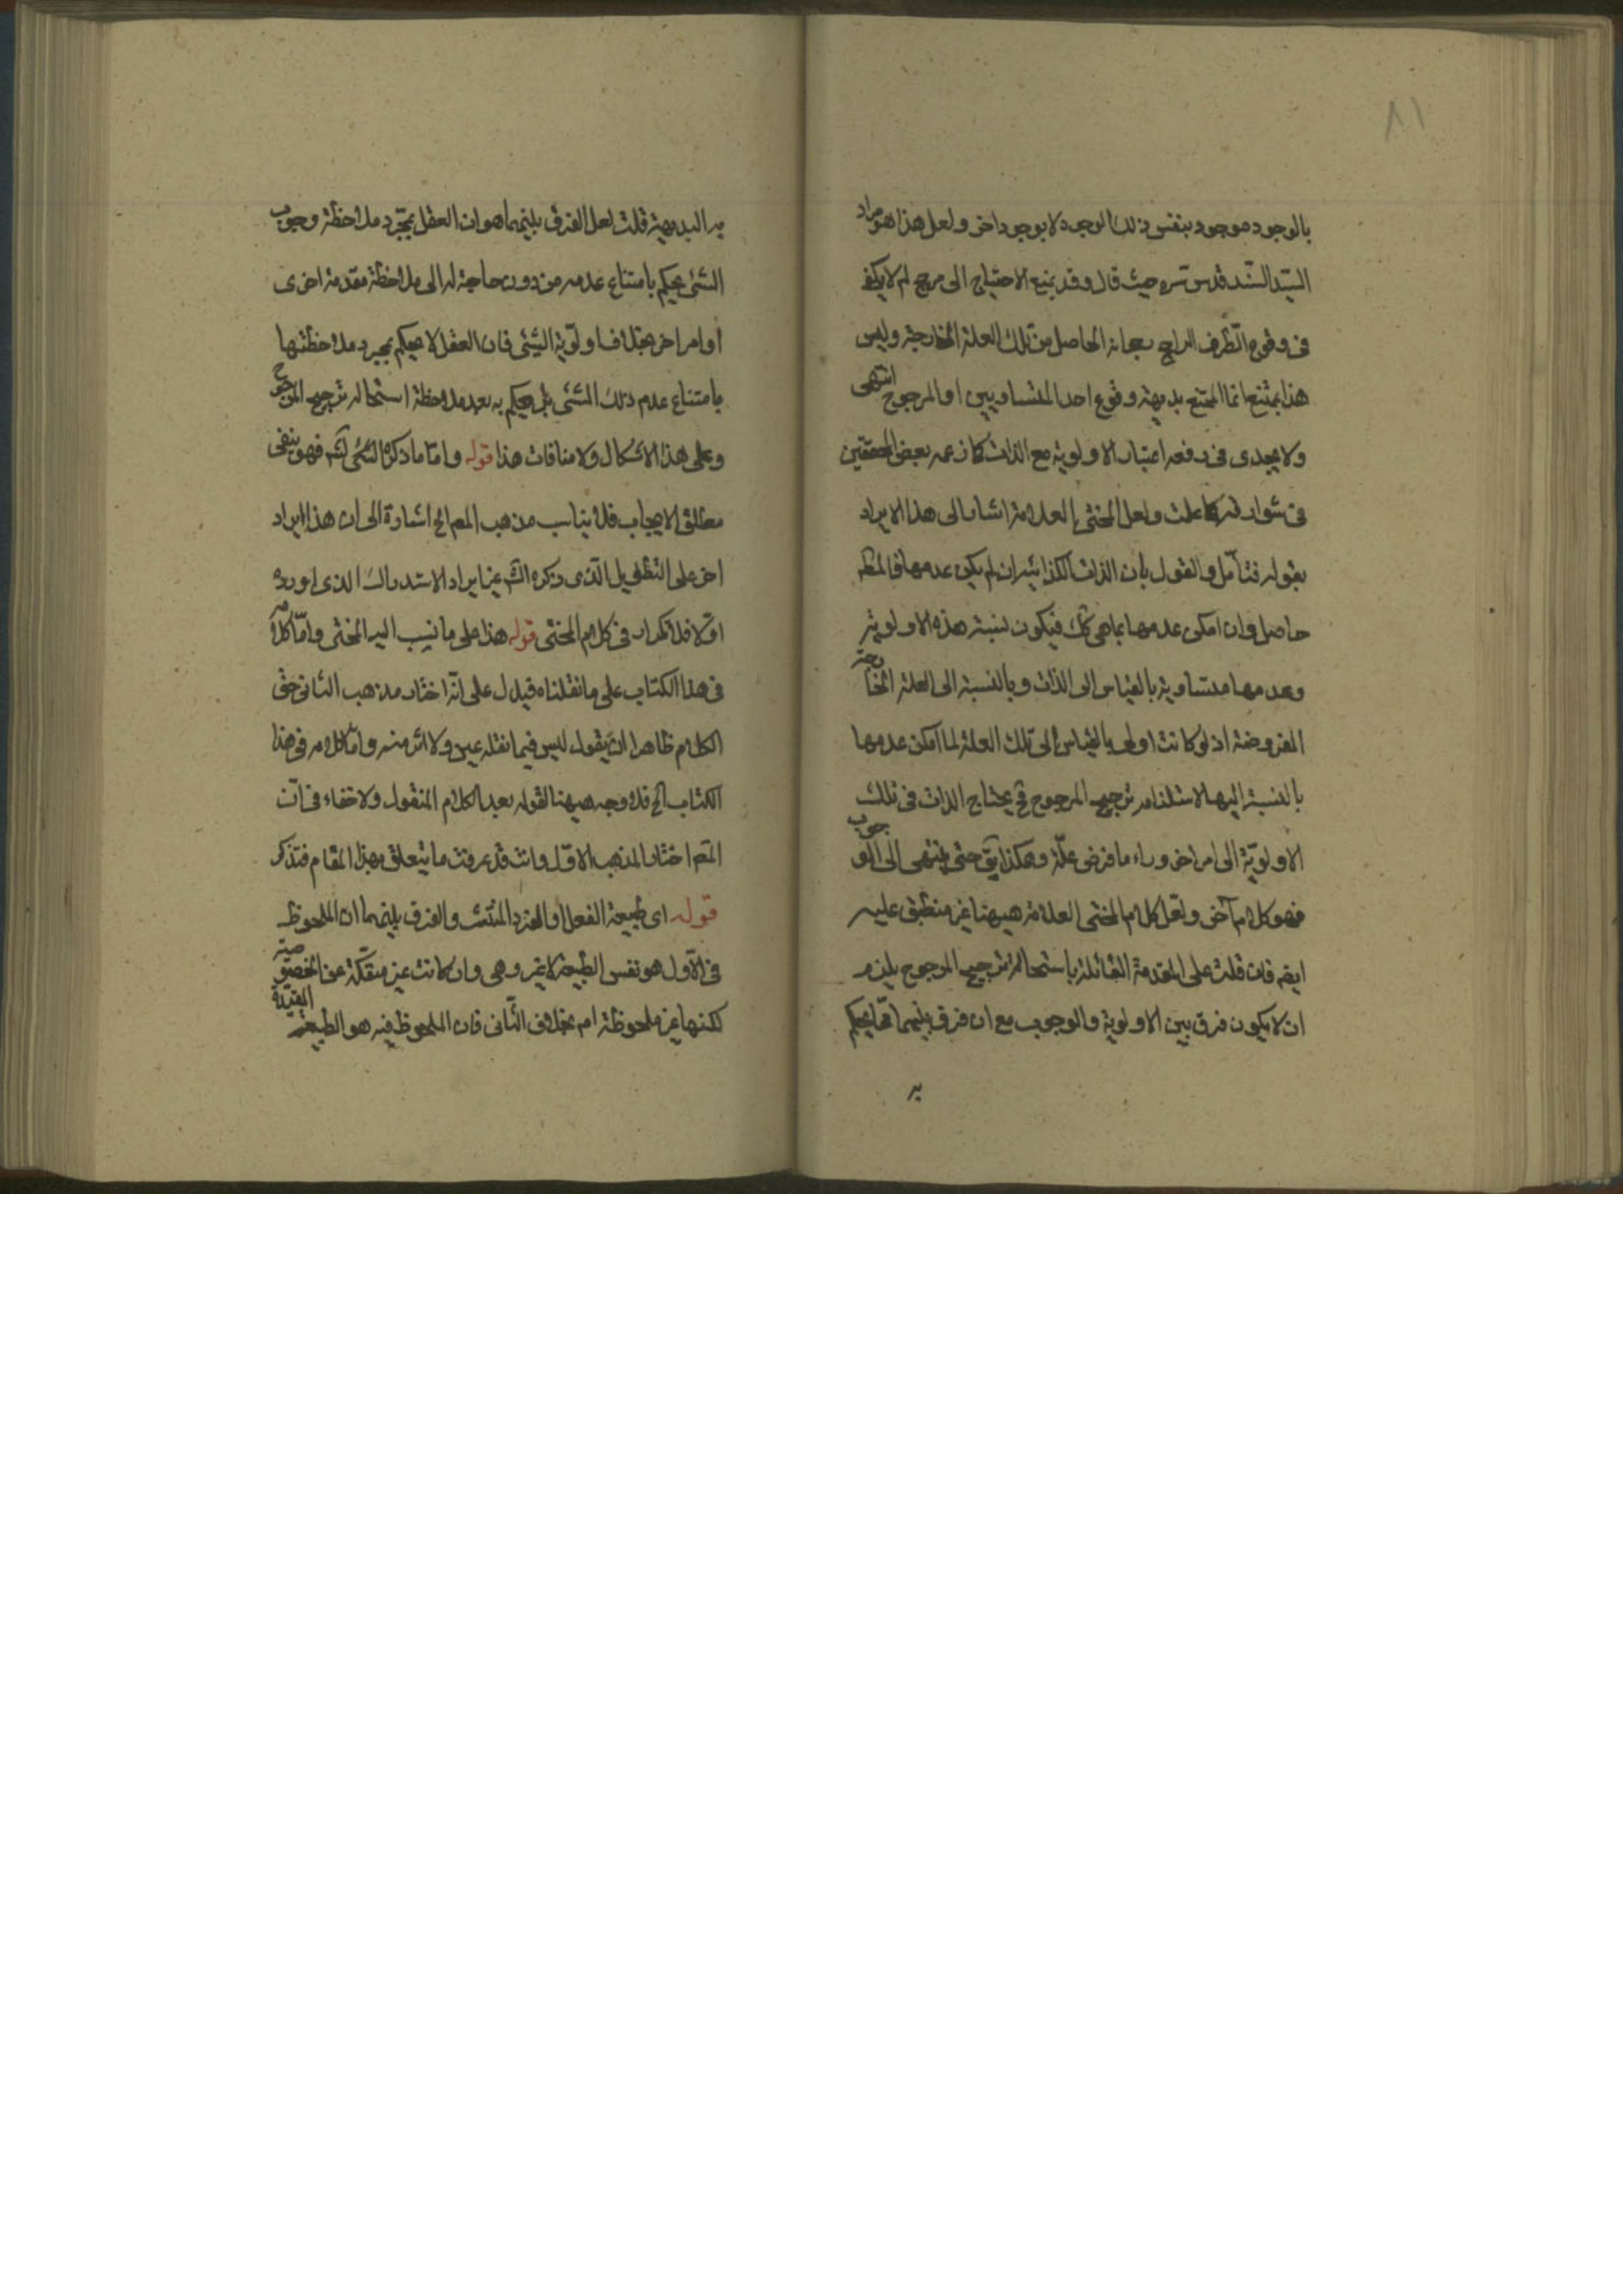 ٨١
بالوجود موجود بنفس ذلك الوجود لا بوجود اخر ولعل هذا هو مراد
السيّد السّند قدس سره حيث قال وقد يمنع الاحتياج الى مرجح لم لا يكفى
فى وقوع الطّرف الراجح رجحانه الحاصل من تلك العلة الخارجية وليس
هذا بممتنع انما الممتنع بديهة وقوع احد المتساويين او المرجوح انتهى
ولا يجدى فى دفعه اعتبار الاولوية مع الذات كما زعمه بعض المحققين
فى شوارقه كما علمت ولعل المحشى العلامة اشار الى هذا الايراد
بقوله فتأمّل والقول بان الذات الكذائية ان لم يكن عدمها فالمظ
حاصل وان امكن عدمها بما هى كك فيكون نسبة هذه الاولوية
وعدمها متساوية بالقياس الى الذات وبالنسبة الى العلة الخارجة
المفروضة اذ لو كانت اولى بالقياس الى تلك العلة لما امكن عدمها
بالنسبة اليها لاستلزامه ترجيح المرجوح فح يحتاج الذات فى تلك
الاولويّة الى امر اخر وراء ما فرض علّة وهكذا يق حتى ينتهى الى الوجوب
فهو كلام آخر ولعل كلام المحشى العلامة هيهنا غير منطبق عليه
ايضه فان قلت على المقدمة القائلة باستحالة ترجيح المرجوح يلزم
ان لا يكون فرق بين الاولوية والوجوب مع ان فرق بينهما مما يحكم
به
به البديهية قلت لعل الفرق بينهما هو ان العقل بمجّرد ملاحظة وجوب
الشئ يحكم بامتناع عدمه من دون حاجة له الى ملاحظة مقدمة اخرى
او امر اخر بخلاف اولوّية الشئ فان العقل لا يحكم بمجرد ملاحظتها
بامتناع عدم ذلك الشئ بل يحكم به بعد ملاحظة استحالة ترجيح المرجوح
وعلى هذا الاشكال ولا منافات هذا قوله وامّا ما ذكره الشئ فهو ينفى
مطلق الايجاب فلا يناسب مذهب المص الخ اشارة الى ان هذا ايراد
اخر على التطويل الّذى ذكره الش غير ايراد الاستدراك الذى اورده
اوّلا فلا تكرار فى كلام المحشى قوله هذا على ما نسب اليه المحشى وامّا كلامه
فى هذا الكتاب على ما نقلناه فيدل على انّه اختار مذهب الثانى حق
الكلام ظاهرا ان يقول ليس فيما نقله عين ولا اثر منه وامّا كلامه فى هذا
الكتاب الخ فلا وجه هيهنا لقوله بعد الكلام المنقول ولا خفاء فى انّ
المص اختار المذهب الاوّل وانت قد عرفت ما يتعلق بهذا المقام فتذكر
قوله اى طبيعة الفعل او الفرد المنتشر والفرق بينهما ان الملحوظ
فى الاّول هو نفس الطبيعة لا غير وهى وان كانت غير منفكّة عن الخصوصية
لكنها غير ملحوظة ام بخلاف الثّانى فان الملحوظ فيه هو الطبيعة المقيّدة